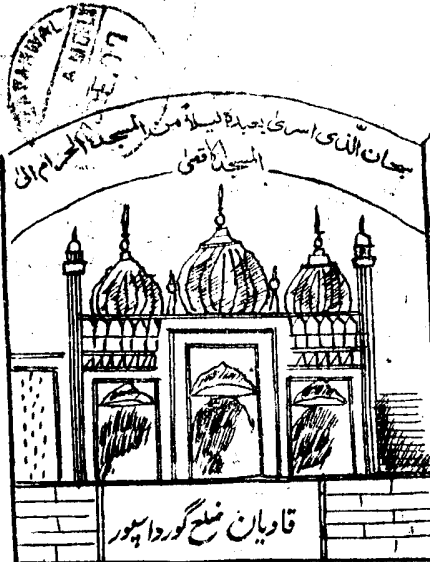 سبحان الّذی اسریٰ بعبدہ لیلاً من المسجد الحرام الی
المسجد الاقصیٰ
قادیان ضلع گورداسپور